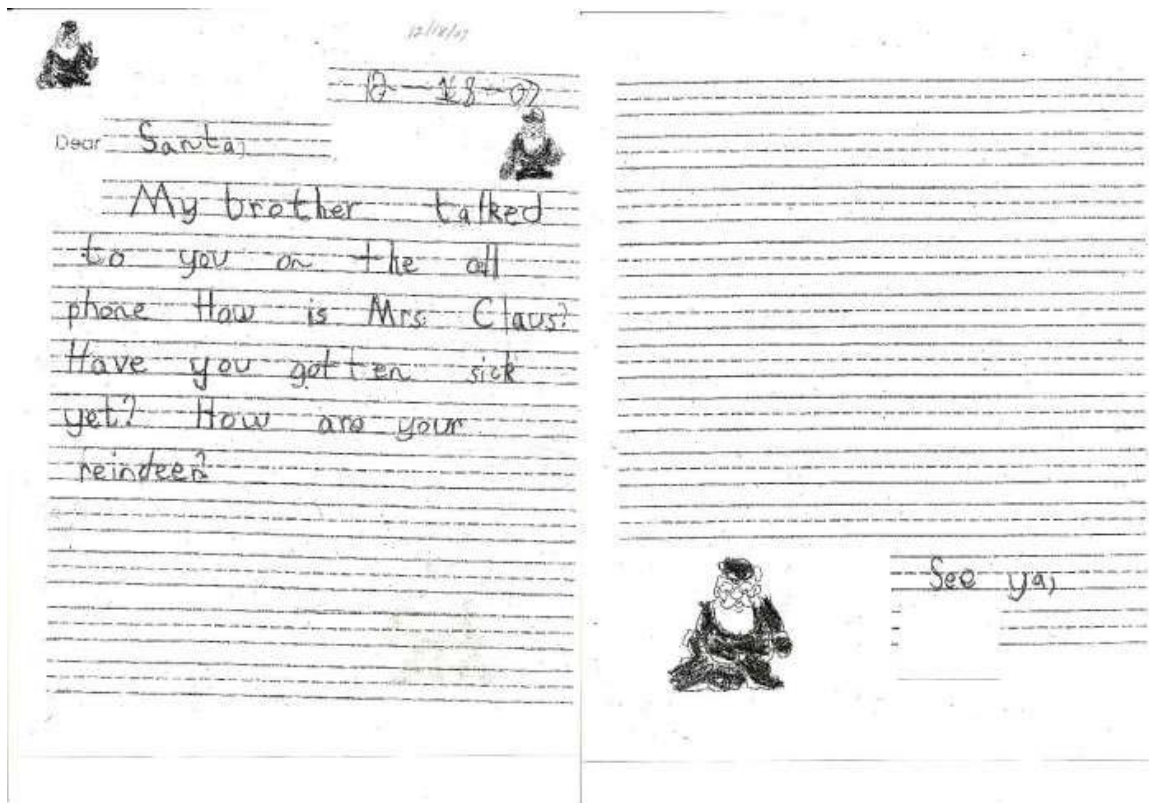 12/18/07
12-18-07
Dear Santa,
My brother talked
to you on the cell
phone How is Mrs. Claus?
Have you gotten sick
yet? How are your
reindeer?
See ya,